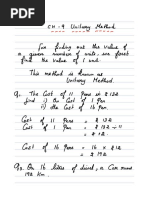 CH-9 Unitary Method
For finding out the value of
a given number of units, we first
find the value of 1 unit.
This method is known as
Unitary Method
Q. The Cost of 11 Pens is $132
find i) The Cost of 1 Pen
ii) The Cost of 16 Pens
Cost of 11 Pens = $132
Cost of 1 Pen = $132 ÷ 11
= $12
Cost of 16 Pens = 16 x $12
= $192
Q2. On 16 litres of diesel, a Car runs
192 km.